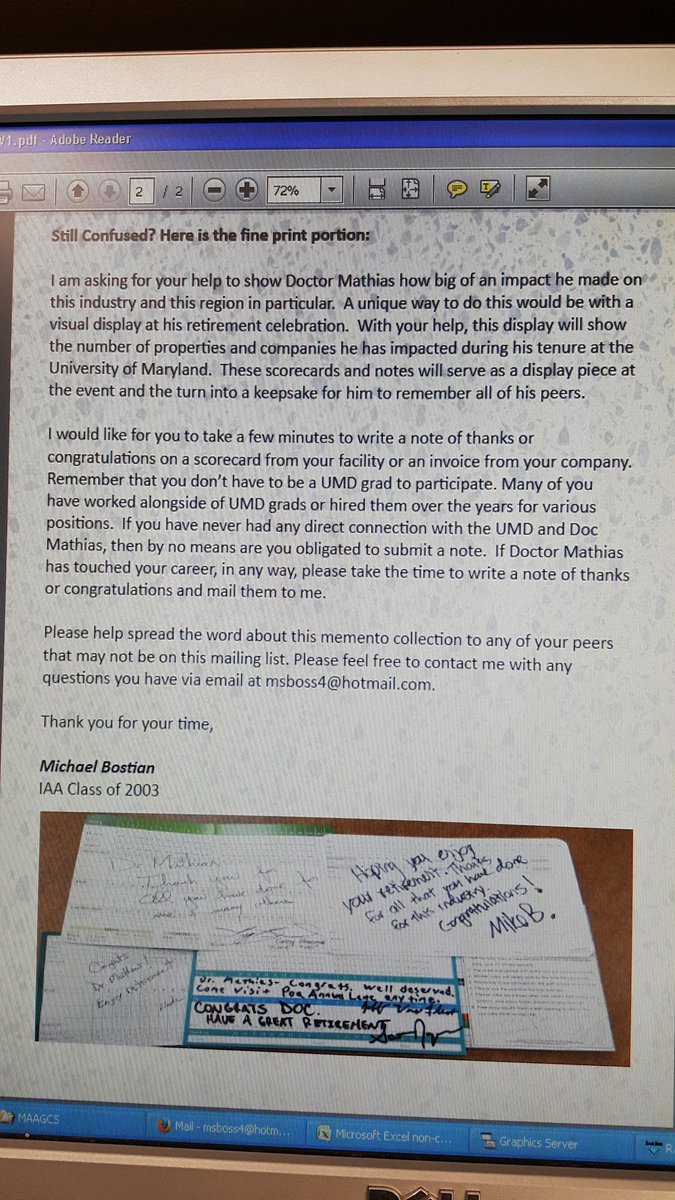 V1.pdf - Adobe Reader
2 / 2 72%
Still Confused? Here is the fine print portion:
I am asking for your help to show Doctor Mathias how big of an impact he made on
this industry and this region in particular. A unique way to do this would be with a
visual display at his retirement celebration. With your help, this display will show
the number of properties and companies he has impacted during his tenure at the
University of Maryland. These scorecards and notes will serve as a display piece at
the event and the turn into a keepsake for him to remember all of his peers.
I would like for you to take a few minutes to write a note of thanks or
congratulations on a scorecard from your facility or an invoice from your company.
Remember that you don't have to be a UMD grad to participate. Many of you
have worked alongside of UMD grads or hired them over the years for various
positions. If you have never had any direct connection with the UMD and Doc
Mathias, then by no means are you obligated to submit a note. If Doctor Mathias
has touched your career, in any way, please take the time to write a note of thanks
or congratulations and mail them to me.
Please help spread the word about this memento collection to any of your peers
that may not be on this mailing list. Please feel free to contact me with any
questions you have via email at msboss4@hotmail.com.
Thank you for your time,
Michael Bostian
IAA Class of 2003
Dr Mathias
Thank you for
all you have done for
me & many others
Hoping you enjoy
your retirement. Thanks
for all that you have done
for this industry.
Congratulations!
Mike B.
Congrats
Dr. Mathias!
Enjoy retirement
Dr. Mathias- Congrats, well deserved.
Come visit Poa Annua Lane any time.
CONGRATS DOC.
HAVE A GREAT RETIREMENT
MAAGCS
Mail - msboss4@hotm...
Microsoft Excel non-c...
Graphics Server
DELL